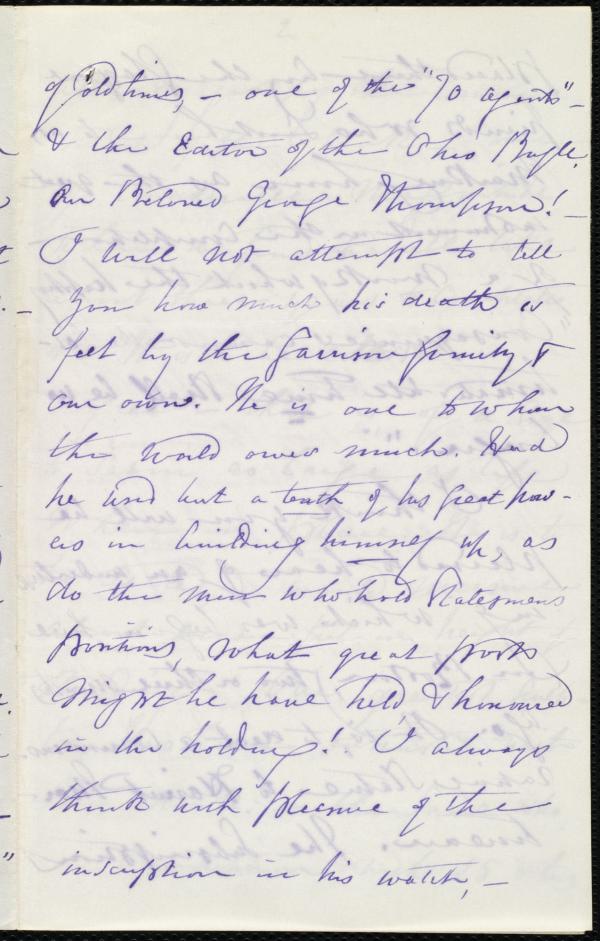 of old times, — one of the "70 agents" —
& the Editor of the Ohio Bugle.
Our Beloved George Thompson! —
I will not attempt to tell
you how much his death is
felt by the Garrison family &
our own. He is one to whom
the world owes much. Had
he used but a tenth of his great pow-
ers in building himself up, as
do the men who hold Statesmen's
positions, what great posts
might he have held, & honoured
in the holding! I always
think with pleasure of the
inscription in his watch, —